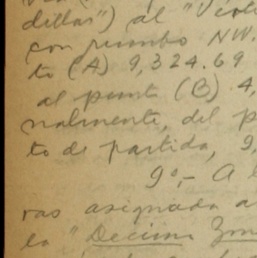 dillas") al "Viol
con rumbo NW.
to (A) 9,324.69
al punto (B) 4,
nalmente, del p
to de partida, 9,
9º,- A l
ras asignada a
la "Decima Zon